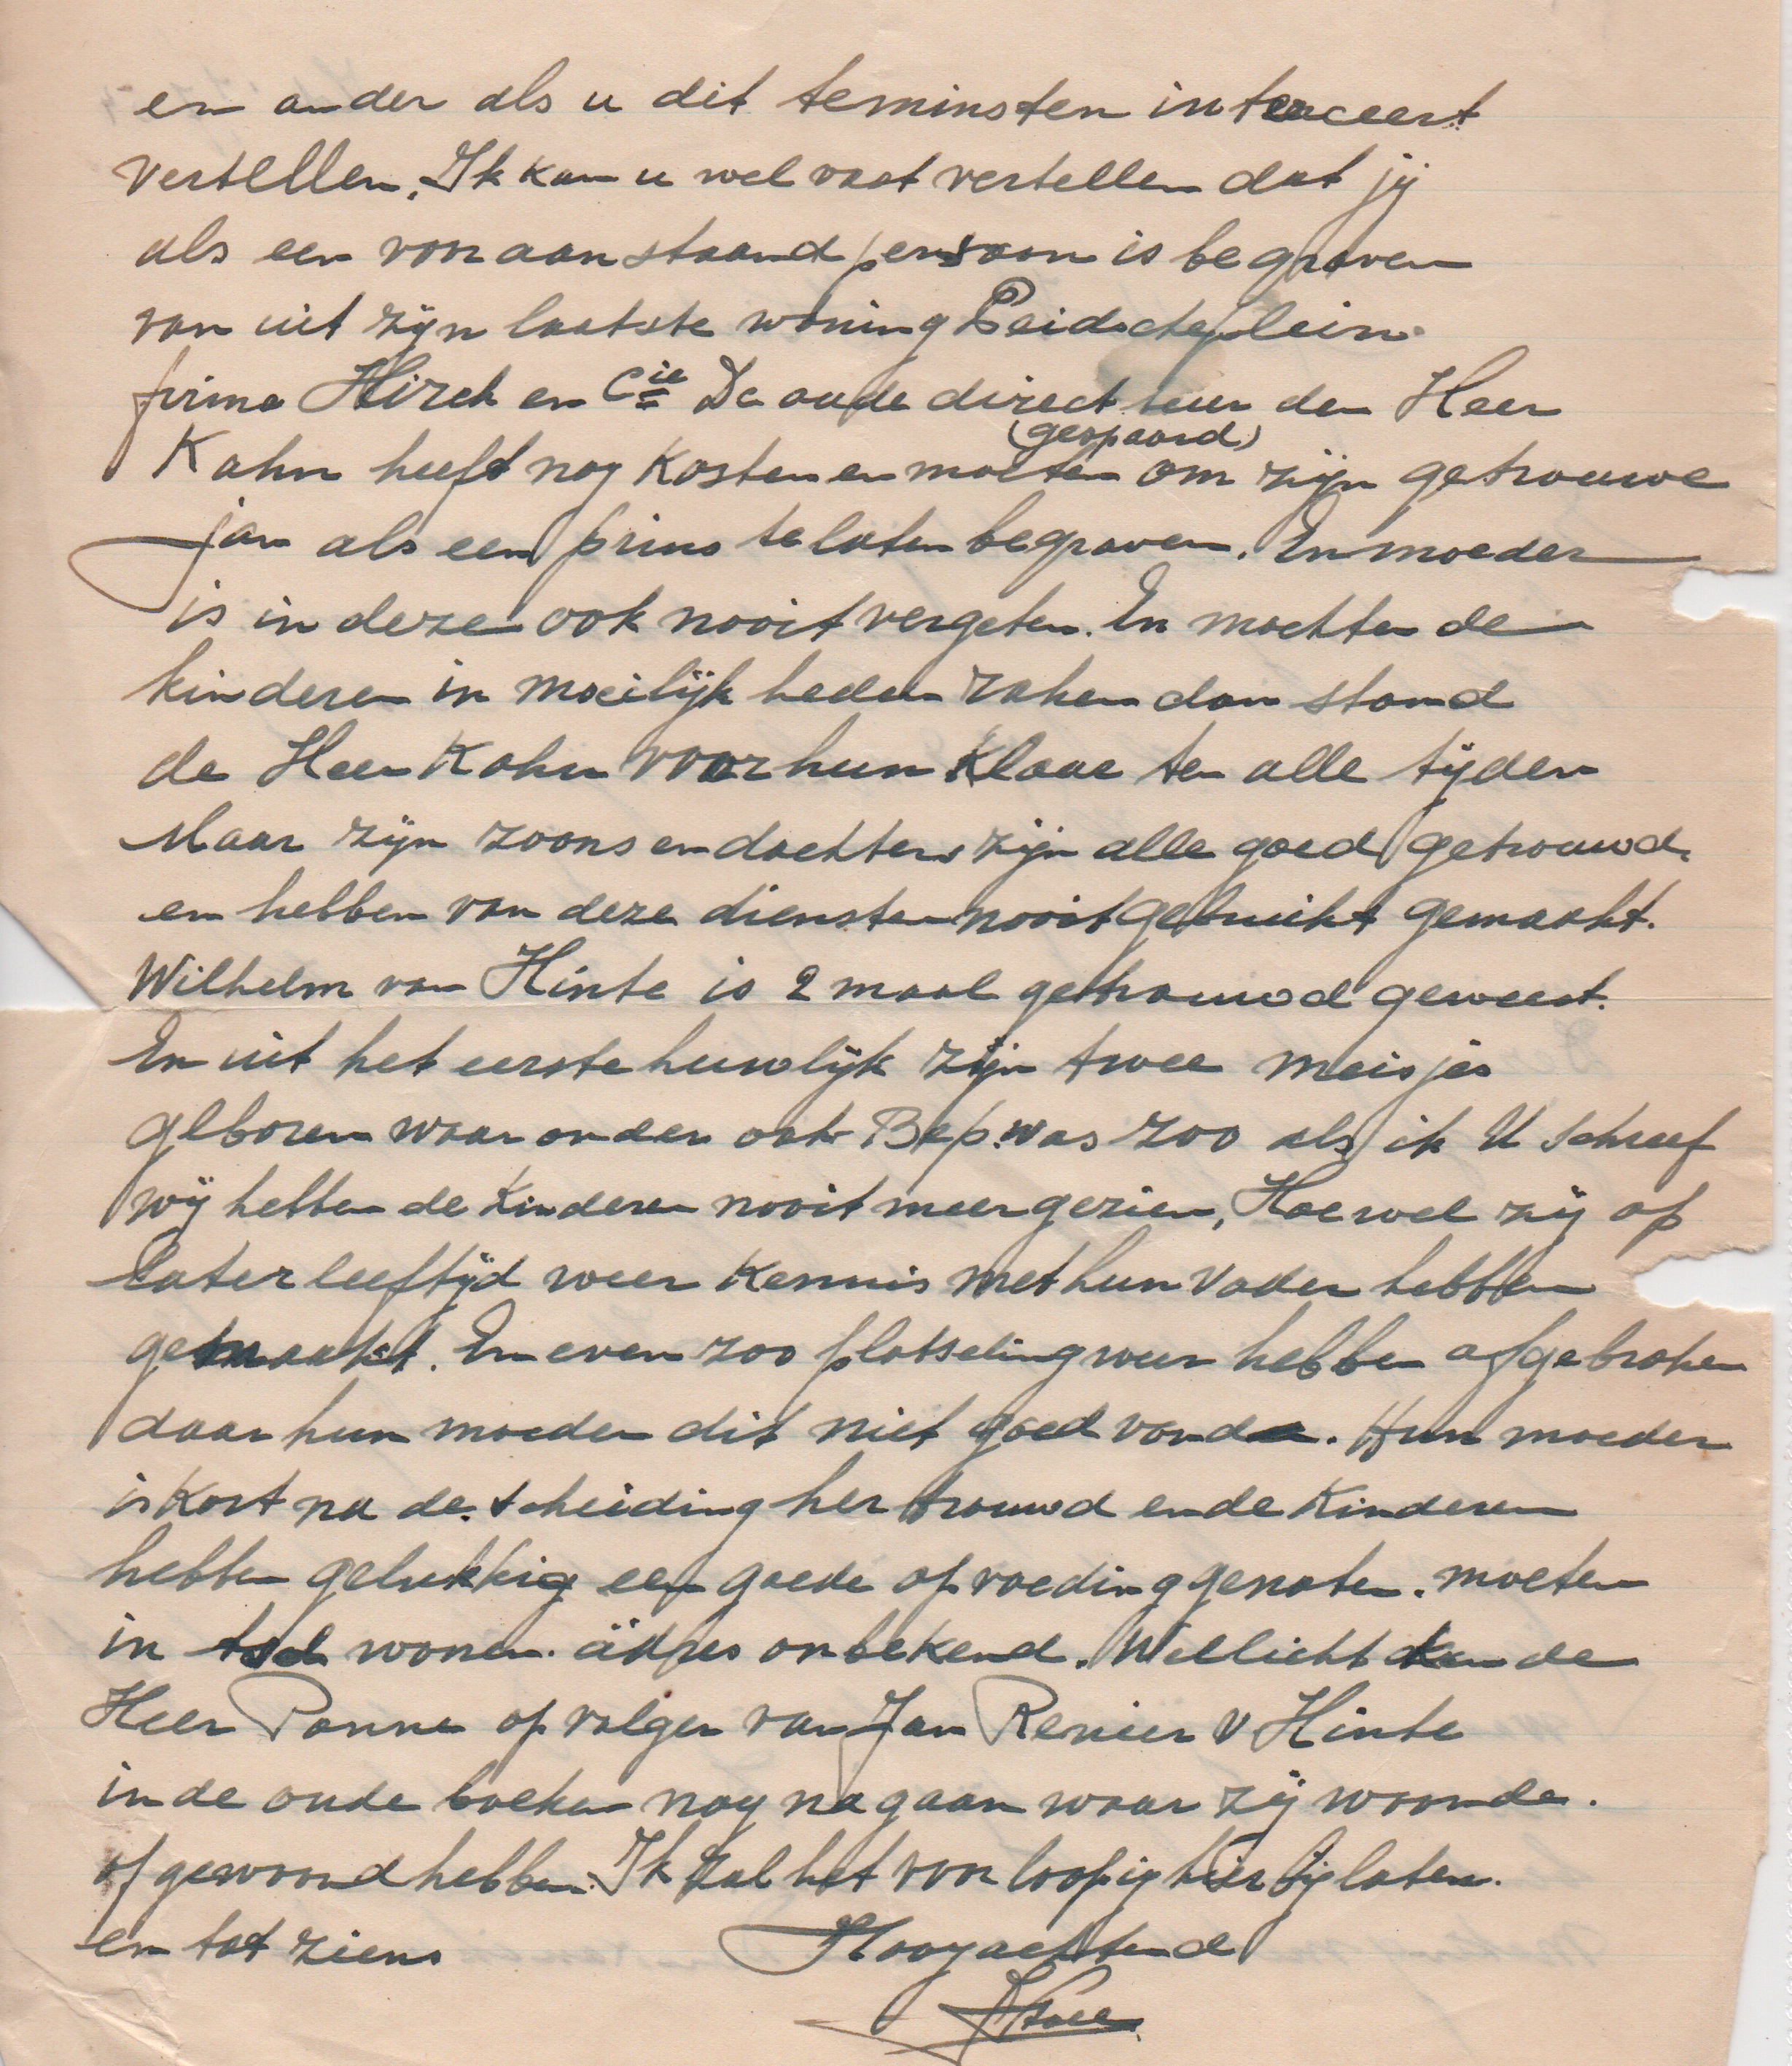 en ander als u dit teminsten interceert
vertellen. Ik kan u wel vast vertellen dat jij
als een vooraanstaand persoon is begraven
van uit zijn laatste woning Leidscheplein
firma Hirch en Cie De oude directeuer den Heer
(gespaard)
Kahn heeft nog kosten en moeten om zijn getrouwe
jan als een prins te laten begraven. En moeder
is in deze ook nooit vergeten. En mochten de
kinderen in moeilijkheden raken dan stond
de Heer Kahn voor hun klaar ten alle tijden
Maar zijn zoons en dochters zijn alle goed getrouwd.
en hebben van deze diensten nooit gebruikt gemaakt.
Wilhelm van Hinte is 2 maal getrouwd geweest.
En uit het eerste heuwlijk zijn twee meisjes
geboren waar onder ook Bep. was zoo als ik U schreef
wij hebben de kinderen nooit meer gezien, Hoewel zij op
later leeftijd weer kennis met hun vader hebben
gemaakt. En even zoo plotseling weer hebben afgebroken
daar hun moeder dit niet goed vond. Hun moeder
is kort na de scheiding her trouwd en de kinderen
hebben gelukkig een goede opvoeding genoten. moeten
in wonen. adres onbekend. Wellicht kan de
Heer Panne opvolger van Jan Renier v Hinte
in de oude boeken nog na gaan waar zij woonde.
of gewoond hebben. Ik zal het voorloopig hier bij laten.
en tot ziens Hoogachtend